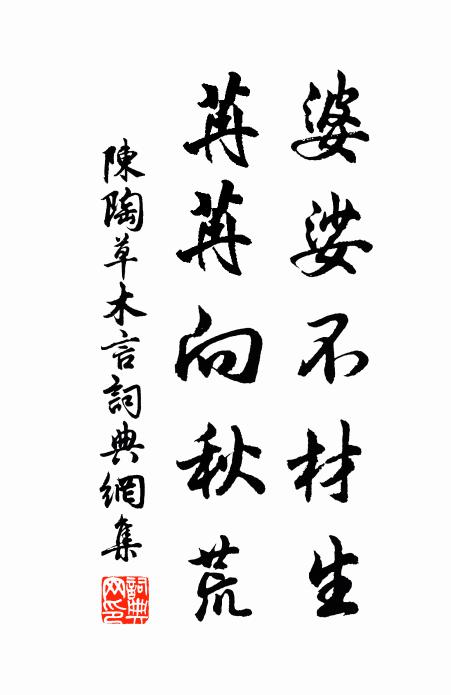 婆娑不材生
苒苒向秋荒
陳陶草木言詞典網集